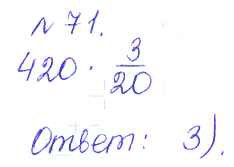 № 71.
420 · 3/20
Ответ: 3).